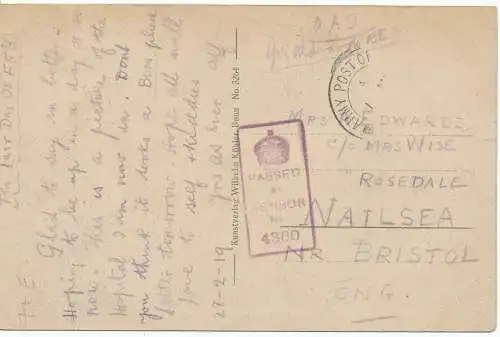 The Last Day of Feb
Glad to say im better
Hoping to be up in a day or so
now. This is a picture of the
Hospital I am now in. Dont
you think it looks a BON place
letter tomorrow hope all well
love to self & Kiddies
27-2-19 Yrs as ever Alf
Kunstverlag Wilhelm Köhler, Bonn No. 3204
OAS
ARMY POST OF
PASSED
BY
CENSOR
No
4360
MRS EDWARDS
C/o MRS WISE
ROSEDALE
NAILSEA
NR BRISTOL
ENG.